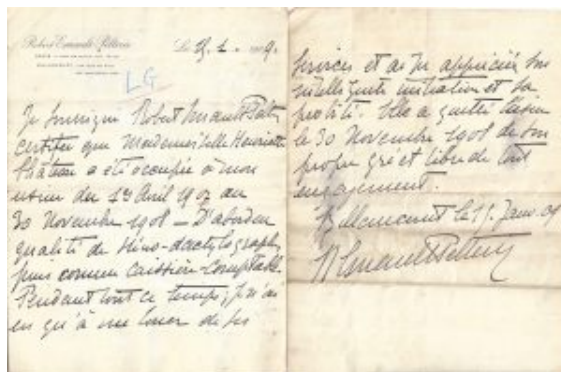 Robert Esnault-Pelterie
Le 15. 1. 1909.
LG
Je soussigné Robert Esnault-Pelterie
certifie que Mademoiselle Henriette
Château a été occupée à mon
usine du 1er Avril 1907 au
30 Novembre 1908 – D'abord en
qualité de sténo-dactylographe,
puis comme caissière-comptable.
Pendant tout ce temps, je n'ai
eu qu'à me louer de ses
services et ai pu apprécier son
intelligente initiative et sa
probité. Elle a quitté l'usine
le 30 Novembre 1908 de son
propre gré et libre de tout
engagement.
Billancourt le 15 Janv. 09
R Esnault Pelterie